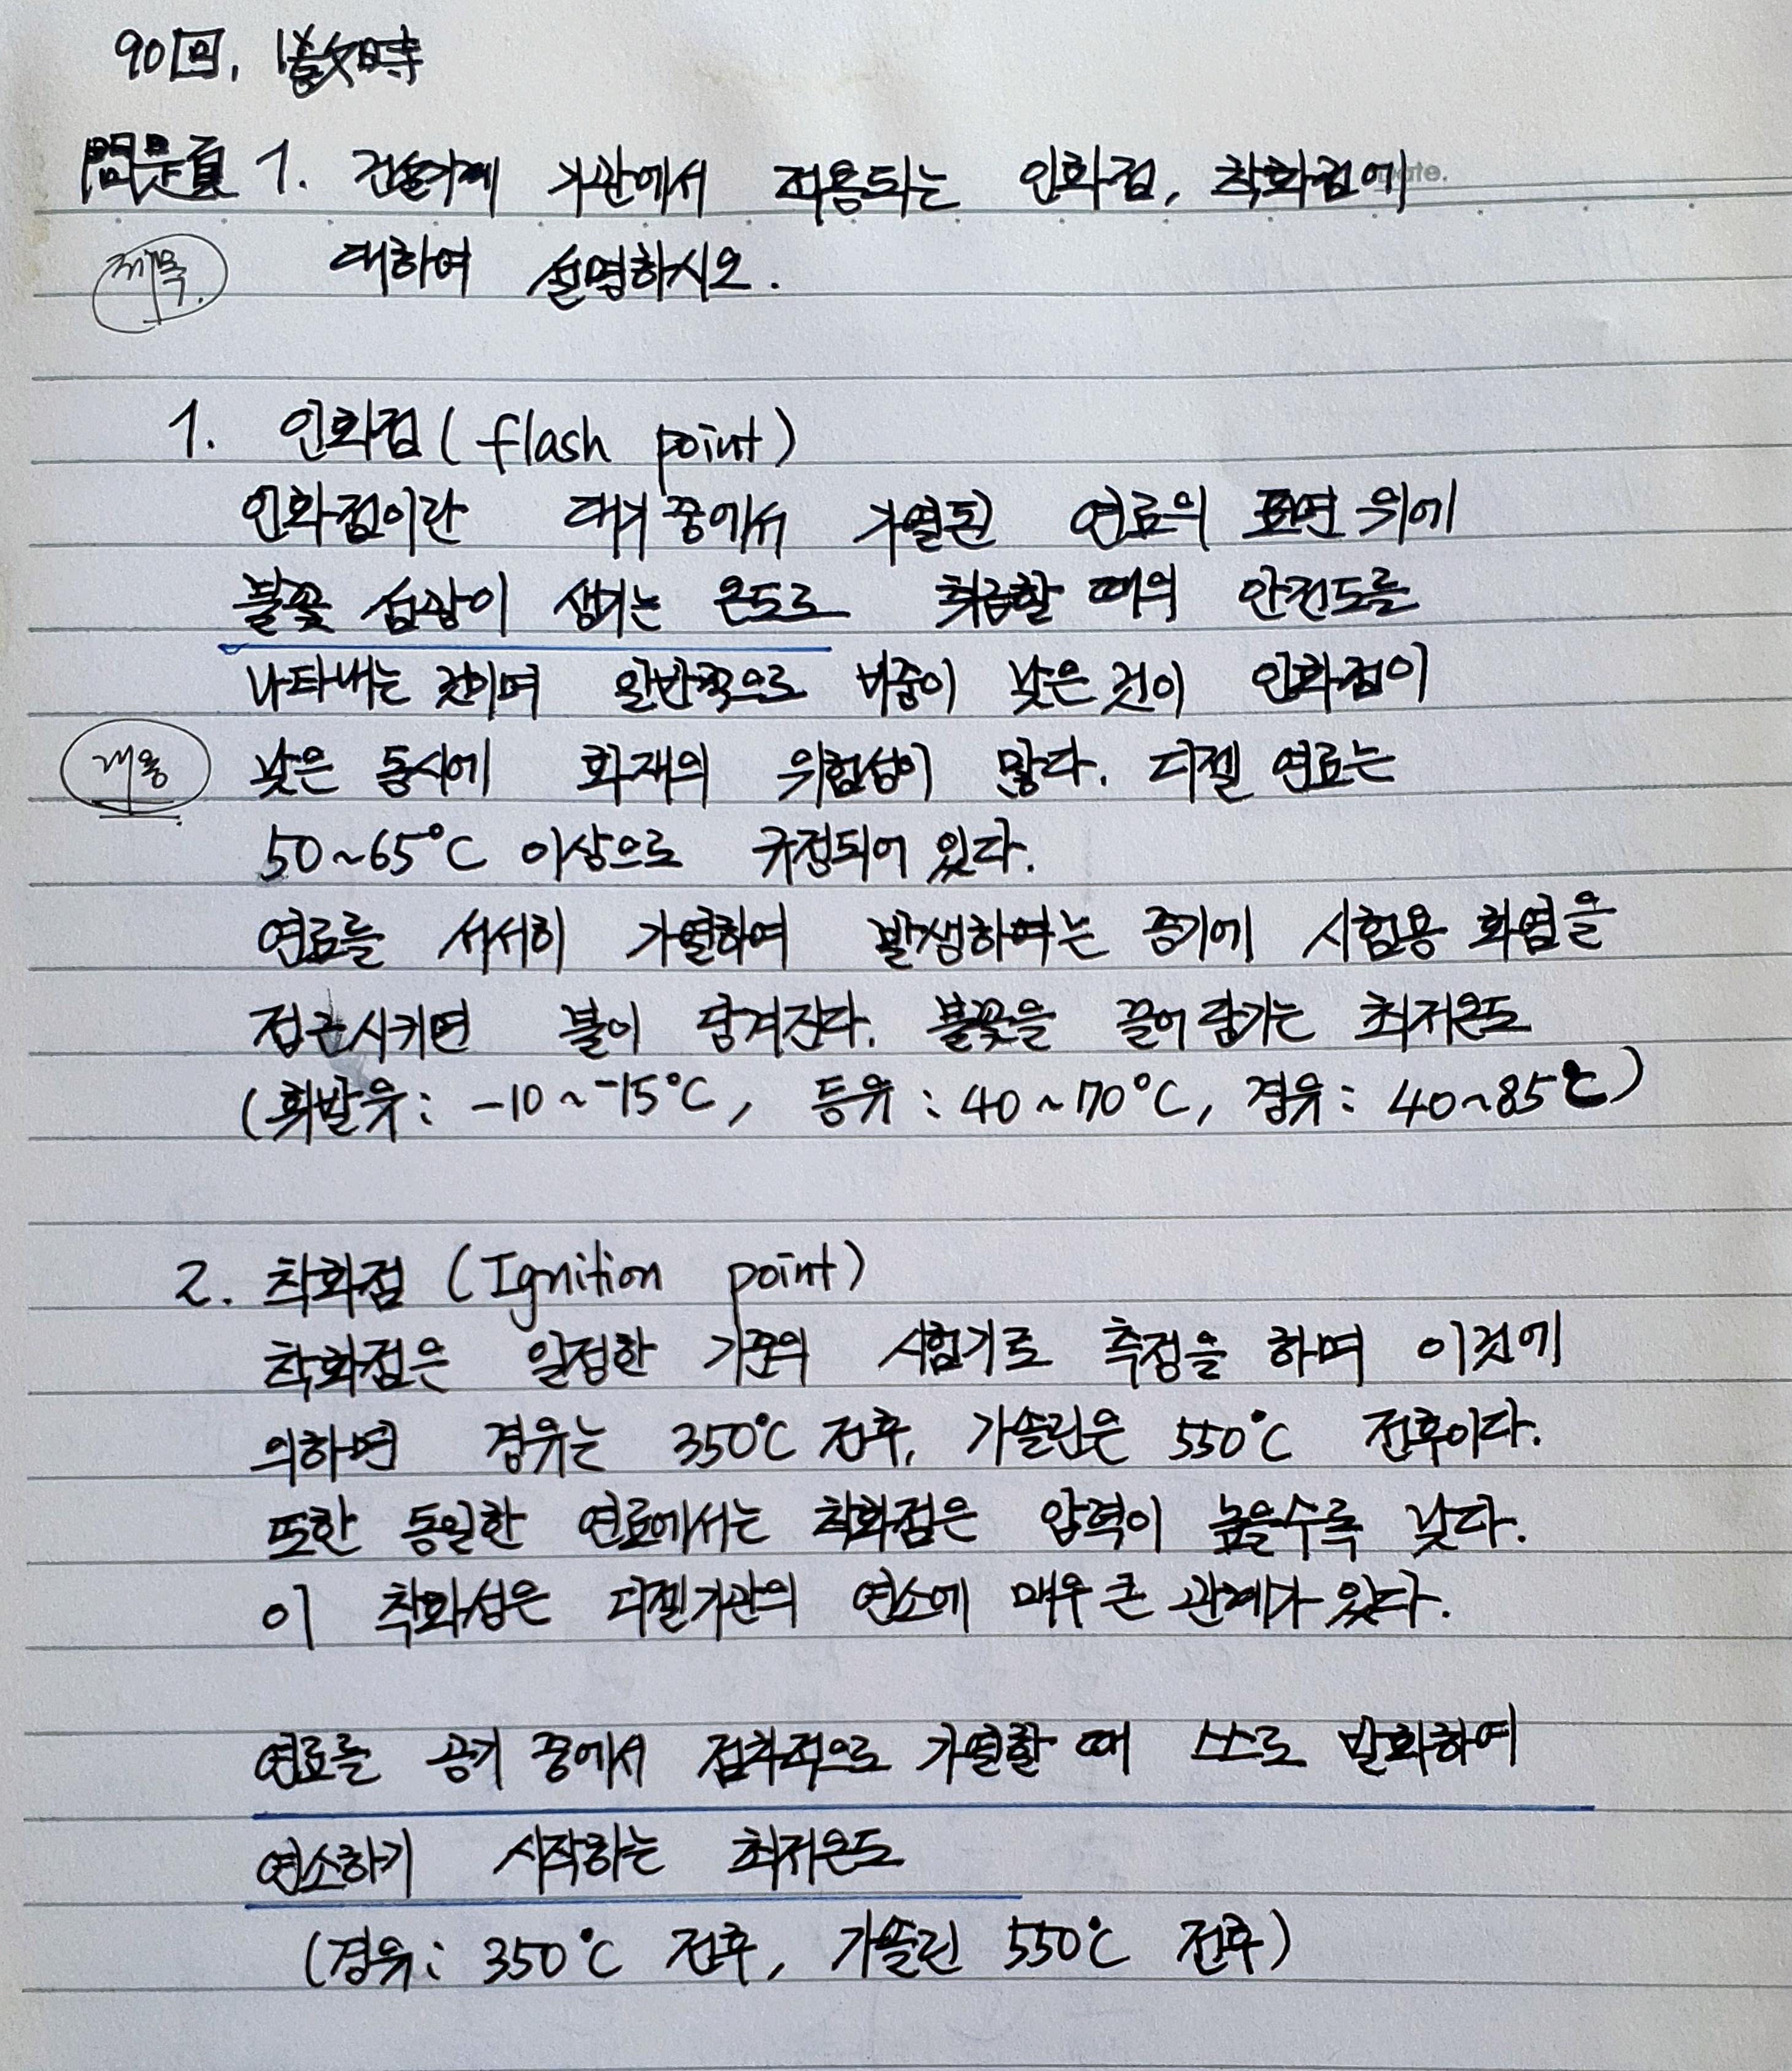 90回, 1敎時
問題 1. 건설기계 기관에서 적용되는 인화점, 착화점에
제목. 대하여 설명하시오.
1. 인화점 (flash point)
인화점이란 대기 중에서 가열된 연료의 표면 위에
불꽃 섬광이 생기는 온도로 취급할 때의 안전도를
나타내는 것이며 일반적으로 비중이 낮은 것이 인화점이
내용 낮은 동시에 화재의 위험성이 많다. 디젤 연료는
50~65℃ 이상으로 규정되어 있다.
연료를 서서히 가열하여 발생하여는 증기에 시험용 화염을
접근시키면 불이 당겨진다. 불꽃을 끌어당기는 최저온도
(휘발유: -10~-15℃, 등유: 40~70℃, 경유: 40~85℃)
2. 착화점 (Ignition point)
착화점은 일정한 기준의 시험기로 측정을 하며 이것에
의하면 경유는 350℃ 전후, 가솔린은 550℃ 전후이다.
또한 동일한 연료에서는 착화점은 압력이 높을수록 낮다.
이 착화성은 디젤기관의 연소에 매우 큰 관계가 있다.
연료를 공기 중에서 점차적으로 가열할 때 스스로 발화하여
연소하기 시작하는 최저온도
(경유: 350℃ 전후, 가솔린 550℃ 전후)